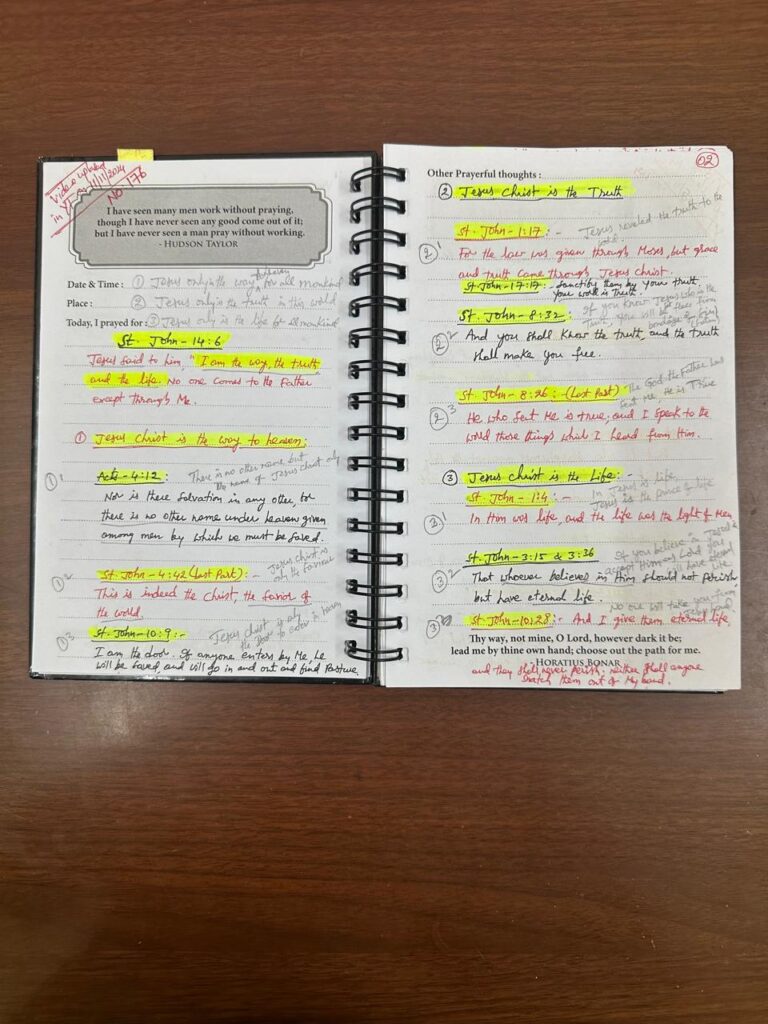 Video uploaded
in YT on 11/11/2024
NO 176
I have seen many men work without praying,
though I have never seen any good come out of it;
but I have never seen a man pray without working.
- HUDSON TAYLOR
Date & Time : ① Jesus only is the way for all mankind
Place : ② Jesus only is the truth in this world
Today, I prayed for : ③ Jesus only is the life for all mankind
St. John - 14:6
Jesus said to him, "I am the way, the truth,
and the life. No one comes to the Father
except through Me.
① Jesus Christ is the way to heaven:
①1 Acts - 4:12 : There is no other name but
the name of Jesus Christ only
Nor is there salvation in any other, for
there is no other name under heaven given
among men by which we must be saved.
①2 St. John - 4:42 (Last Part) : - Jesus Christ is
only the saviour
This is indeed the Christ, the Savior of
the world.
①3 St. John - 10:9 : - Jesus Christ is only
the door to enter in heaven
I am the door. If anyone enters by Me, he
will be saved, and will go in and out and find pasture.
02
Other Prayerful thoughts :
② Jesus Christ is the Truth
St. John - 1:17 : - Jesus revealed the truth to the
②1 For the law was given through Moses, but grace
and truth came through Jesus Christ.
St. John - 17:17 : - Sanctify them by Your truth
Your word is Truth.
St. John - 8:32 : - If you know Jesus who is the
Truth, you will be free from
bondage
②2 And you shall know the truth, and the truth
shall make you free.
St. John - 8:26 : - (Last Part) The God the Father who
sent Me, He is True
②3 He who sent Me is true, and I speak to the
world those things which I heard from Him.
③ Jesus Christ is the Life : -
St. John - 1:4 : - In Jesus is life,
Jesus is the prince of life
③1 In Him was life, and the life was the light of men
St. John - 3:15 & 3:36 If you believe in Jesus &
accept Him as Lord you
will have life.
③2 That whoever believes in Him should not perish
but have eternal life.
No one will take you from
③3 St. John - 10:28 : - And I give them eternal life,
Thy way, not mine, O Lord, however dark it be;
lead me by thine own hand; choose out the path for me.
- HORATIUS BONAR
and they shall never perish. neither shall anyone
snatch them out of My hand.